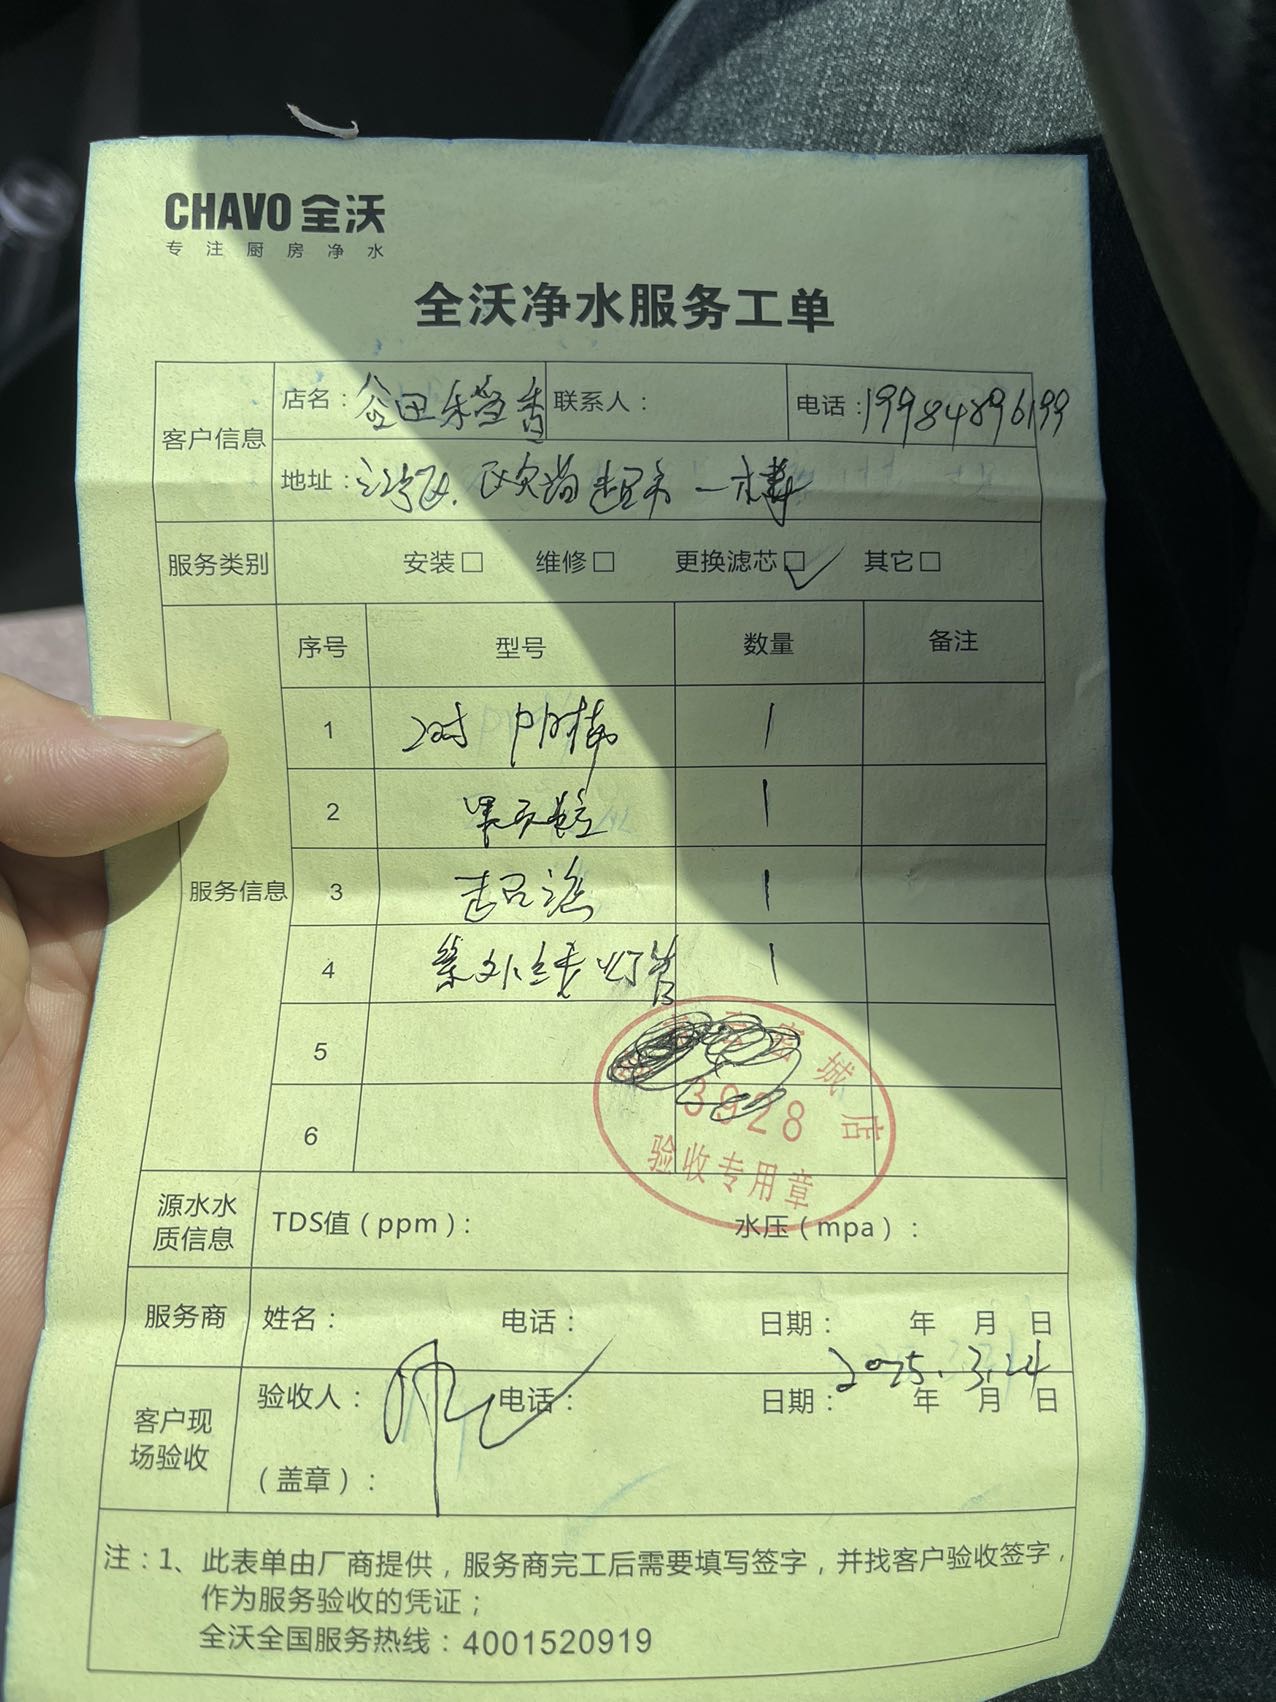 CHAVO 全沃
专注厨房净水
全沃净水服务工单
客户信息
店名：谷田稻香
联系人：
电话：19984896199
地址：江宁区 欧尚超市 一楼
服务类别
安装□ 维修□ 更换滤芯□✓ 其它□
服务信息
序号 型号 数量 备注
1 20寸 PP棉 1
2 果壳炭 1
3 超滤 1
4 紫外线灯管 1
5
6
城店
3928
验收专用章
源水水质信息
TDS值（ppm）： 水压（mpa）：
服务商
姓名： 电话： 日期： 年 月 日
2025.3.24
客户现场验收
验收人： 电话： 日期： 年 月 日
（盖章）：
注：1、此表单由厂商提供，服务商完工后需要填写签字，并找客户验收签字，
作为服务验收的凭证；
全沃全国服务热线：4001520919